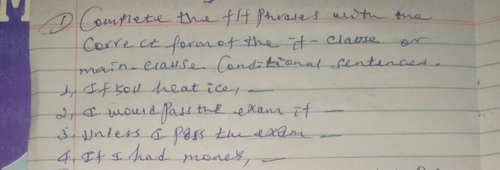 1) Complete the f/f phrases with the
correct form of the if-clause or
main-clause. Conditional sentences.
1, If you heat ice, —
2, I would pass the exam if —
3. Unless I pass the exam —
4. If I had money, —